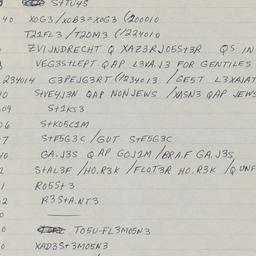 S+TU4S
40 XOG3/XOB3=XOG3 (200010
T21FL3/T20M3 (1224010
ZVIJNDRECHT Q XAZ3RJO5S+3R QS IN
VEG3S+LEPT QAP L3XA.J3 FOR GENTILES
234014 G3PEJG3RT (1234013 /GE5T L3XAIAT
10 S+VE4J3N QAP NON JEWS /XASN3 QAP JEWS
09 S+1KS3
06 S+KO5C1M
7 S+E5G3C /GUT S+E5G3C
40 GA.J3S QAP GOJ1M /BRA.F GA.J3S
2 S+AL3F /HO.R3K /FLOT3R HO.R3K /QUNF
1 RO5S+3
2 R3S+A.NT3
0
0 TO5U-FL3MO5N3
0 XAD3S+3MO5N3